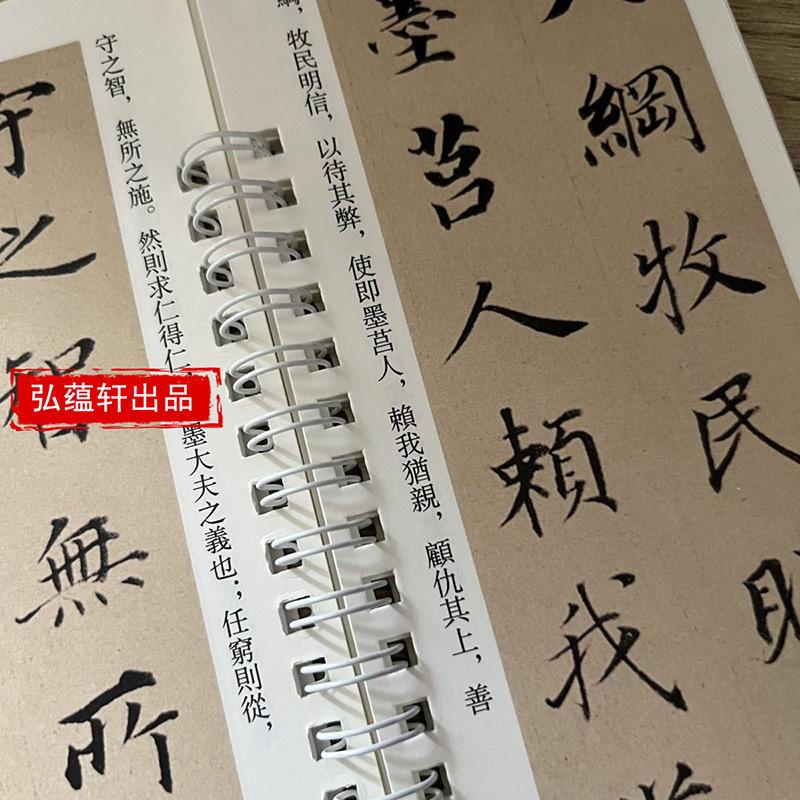 人綱牧民明
墨莒人賴我
綱，牧民明信，以待其弊，使即墨莒人，賴我猶親，顧仇其上，善
守之智，無所之施。然則求仁得仁
墨大夫之義也；任窮則從，
守之智無所
弘蕴轩出品